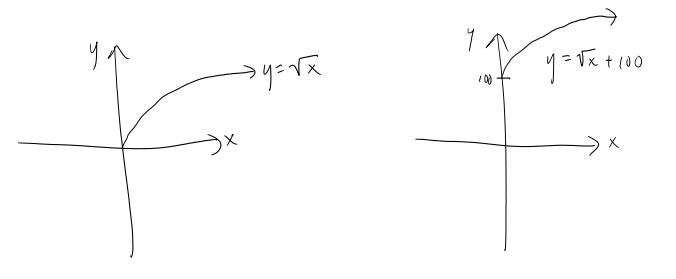 y
y = √x
x
y
100
y = √x + 100
x